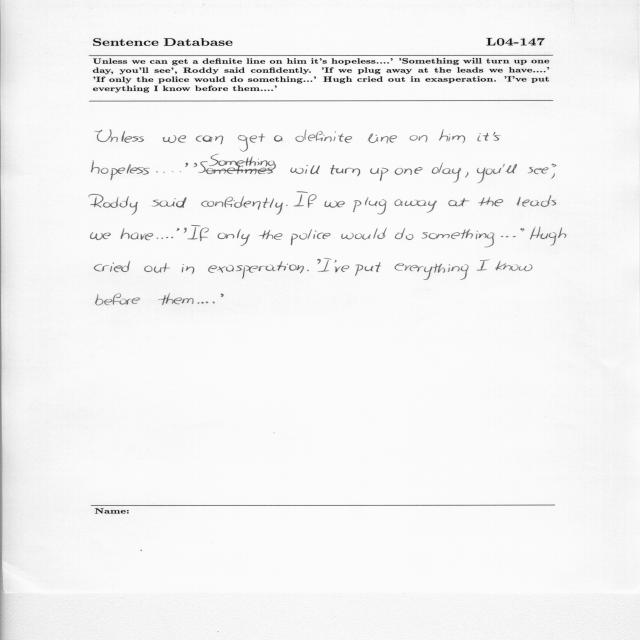 Sentence Database L04-147
Unless we can get a definite line on him it's hopeless....' 'Something will turn up one
day, you'll see', Roddy said confidently. 'If we plug away at the leads we have....'
'If only the police would do something...' Hugh cried out in exasperation. 'I've put
everything I know before them....'
'Unless we can get a definite line on him it's
hopeless ....' 'Sometimes Something will turn up one day, you'll see',
Roddy said confidently. If we plug away at the leads
we have....' 'If only the police would do something ...' Hugh
cried out in exasperation. 'I've put everything I know
before them....'
Name: